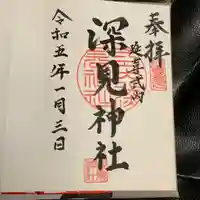 奉拝
延喜式内
深見神社
令和五年一月三日